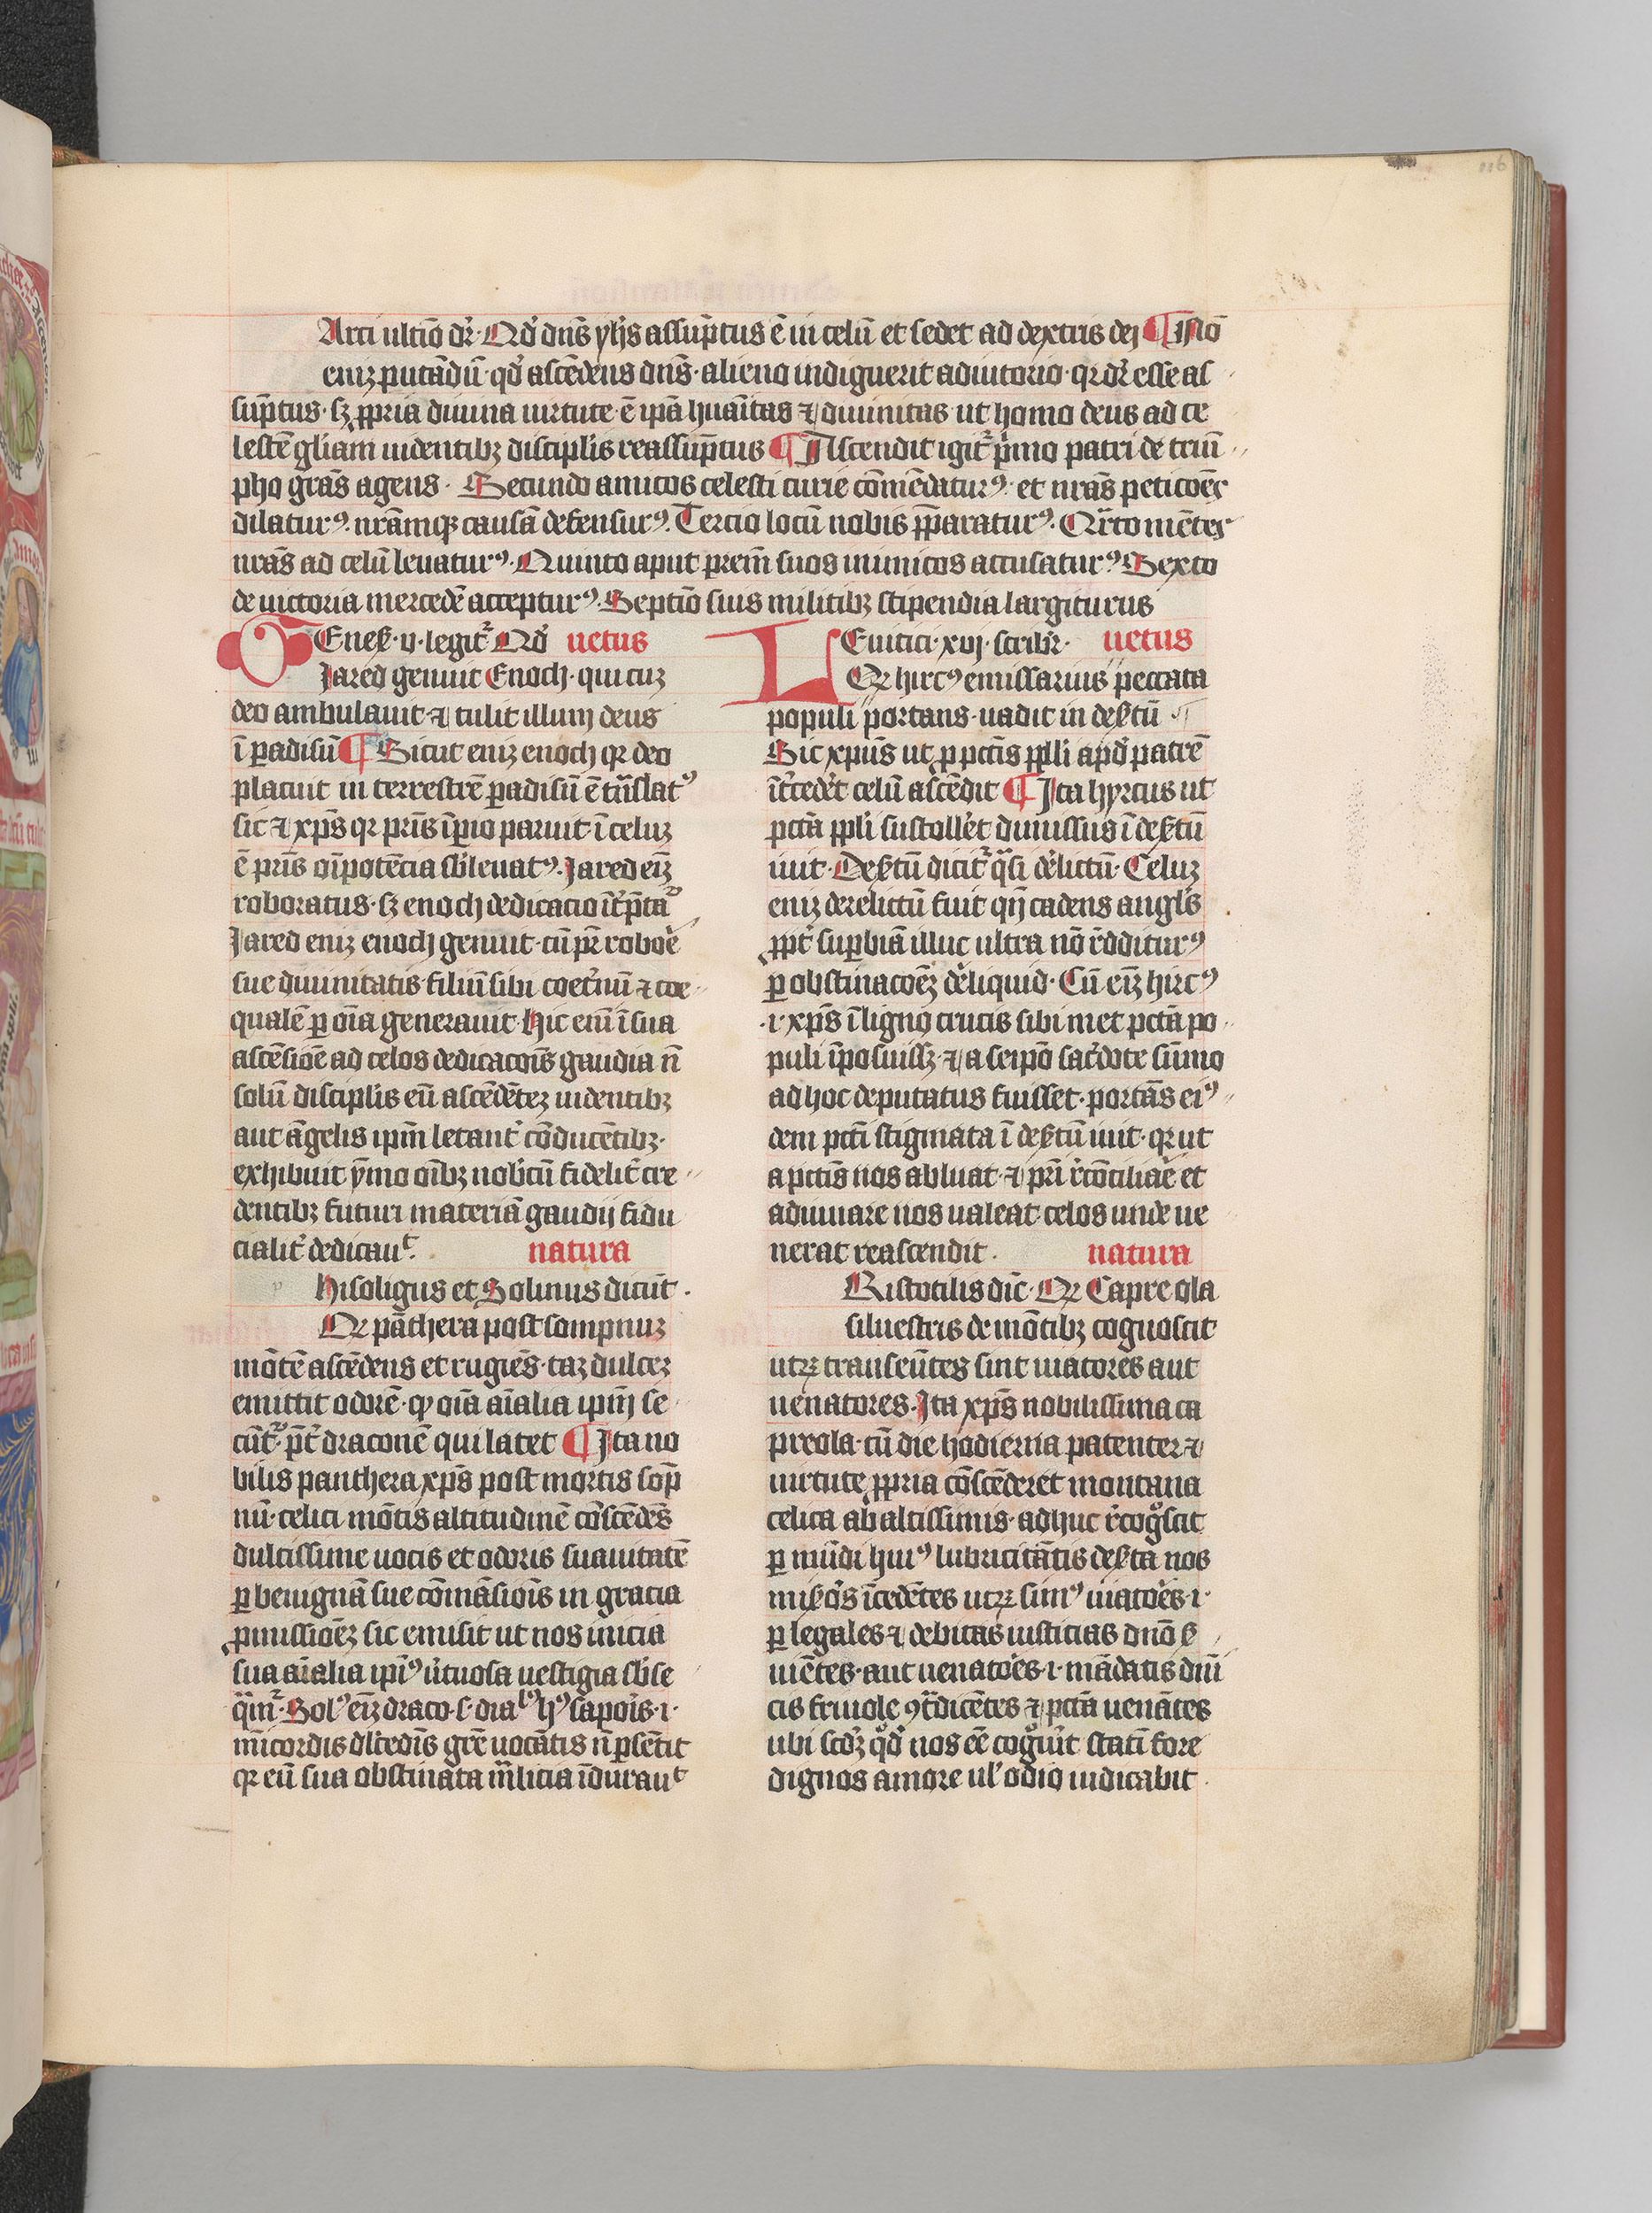 116
Arci ultīo dr̄. Qd̄ dn̄s yh̄s assūptus ē in celū et sedet ad dextris dej ¶ Nō
eniz putādū. qd̄ ascēdens dn̄s. alieno indiguerit adiutorio. qr dr̄ esse as
sūptus. sz ꝓpria diuina uirtute. ē ipā huāitas ⁊ diuinitas ut homo deus ad ce
lestē gliam uidentibz disciplis reassūptus ¶ Ascendit igit̄ pͥmo patri de triū
pho grās agens. Secundo amicos celesti curie cōmēdaturꝰ. et nrās peticōēs
dilaturꝰ. nrāmqꝫ causā defensurꝰ. Tercio locū nobis p̄paraturꝰ. Qͣrto mētes
nrās ad celū leuaturꝰ. Quinto aput prem̄ suos inimicos accusaturꝰ. Sexto
de uictoria mercedē accepturꝰ. Septīo suis militibz stipendia largiturus
GEnes. v. legit̄ Qd̄ uetus
Jared genuit Enoch. qui cuz
deo ambulauit. ⁊ tulit illum deus
ī ꝑadisū ¶ Sicut eniz enoch qr deo
placuit in terrestrē ꝑadisū ē trn̄slatꝰ
sic ⁊ xp̄s qr pris̄ īpio paruit. ī celuz
ē pris̄ oīpotēcia sb̄leuatꝰ. Jared eiz̄
roboratus. sz enoch dedicacio īt̄ptaͬ
Jared eniz enoch genuit. cū pr̄ roboē
sue diuinitatis filiū sibi coet̄nū ⁊ coe
qualē ꝑ oīa generauit. Hic enī ī sua
ascēsiōe ad celos dedicacōis gaudia n̄
solū disciplis eū ascēdētez uidentibz
aut āgelis ipm̄ letant̄ cōducētibz.
exhibuit ymo oībz nobcū fidelit̄ cre
dentibz futuri materiā gaudij fidu
cialit̄ dedicauᵗ. natura
Hisoligus et Solinus dicūt.
Qr pāthera post sompnuz
mōtē ascēdens et rugiēs. taz dulcez
emittit odorē. qͥ oīa aīalia ipm̄ se
cūt̄. pt̄ draconē qui latet ¶ Ita no
bilis panthera xp̄s post mortis sop̄
nū. celici mōtis altitudinē cōscēdēs
dulcissime uocis et odoris suauitatē
ꝑ benignā sue cōmāsiois̄ in gracia
ꝓmissiōez sic emisit ut nos inicia
sua aīalia ipīꝰ uͥtuosa uestigia sb̄se
qͣm̄. Solꝰ eiz̄ draco. s. diaᵇꝰ hꝰ sapois̄. i.
mīcordis dl̄cedīs gr̄e uocātis n̄ ꝑsētit
qr eū sua obstinata mͣlicia īdurauᵗ
LEuitici. xvj. scribr̄. uetus
Qr hircꝰ emissarius peccata
populi portans. uadit in desͭtū
Sic xpūs ut ꝑ pctīs ppl̄i apd̄ patrē
īt̄cedet celū ascēdit ¶ Ita hyrcus ut
pctā ppl̄i sustollet̄ dimissus ī desͭtū
iuit. Desͭtū dicit̄ qͣsi delictū. Celuz
eniz derelictū fuit qn̄ cadens angls̄
ꝓpt̄ suꝑbiā illuc ultra nō rͤdditurꝰ
ꝑ obstinacōez deliquid. Cū eiz̄ hircꝰ
.i. xp̄s ī ligno crucis sibi met pctā po
puli īposuissz ⁊ a seipō sacͬdote sūmo
ad hoc deputatus fuisset. portās eiꝰ
dem pcti stigmata ī desͭtū iuit. qr ut
a pctīs nos abluat. ⁊ prī rͤcōciliaͤ et
adiuuare nos ualeat celos unde ue
nerat reascendit. natura
Ristotilis dic̄. Qr Capreola
siluestris de mōtibz cognoscit
utrꝫ transeūtes sint uiatores aut
uenatores. Ita xp̄s nobilissima ca
preola. cū die hodierna patenter ⁊
uirtute ꝓpria cōscēderet montana
celica ab altissimis. adhuc rͤcogͦscit
ꝑ mūdi huiꝰ lubricitātis desͭta nos
miseͦs īcedētes utrꝫ simꝰ uiatoēs. i.
ꝑ legales ⁊ debitas iusticias dnō sͤ
uiētes. aut uenatoēs. i. mādatis diuī
cis friuole ꝯtͣdicētes ⁊ pctā uenātes
ubi scdꝫ qͦd nos eē cogͦuͥt statī fore
dignos amore ul̕ odio iudicabit.